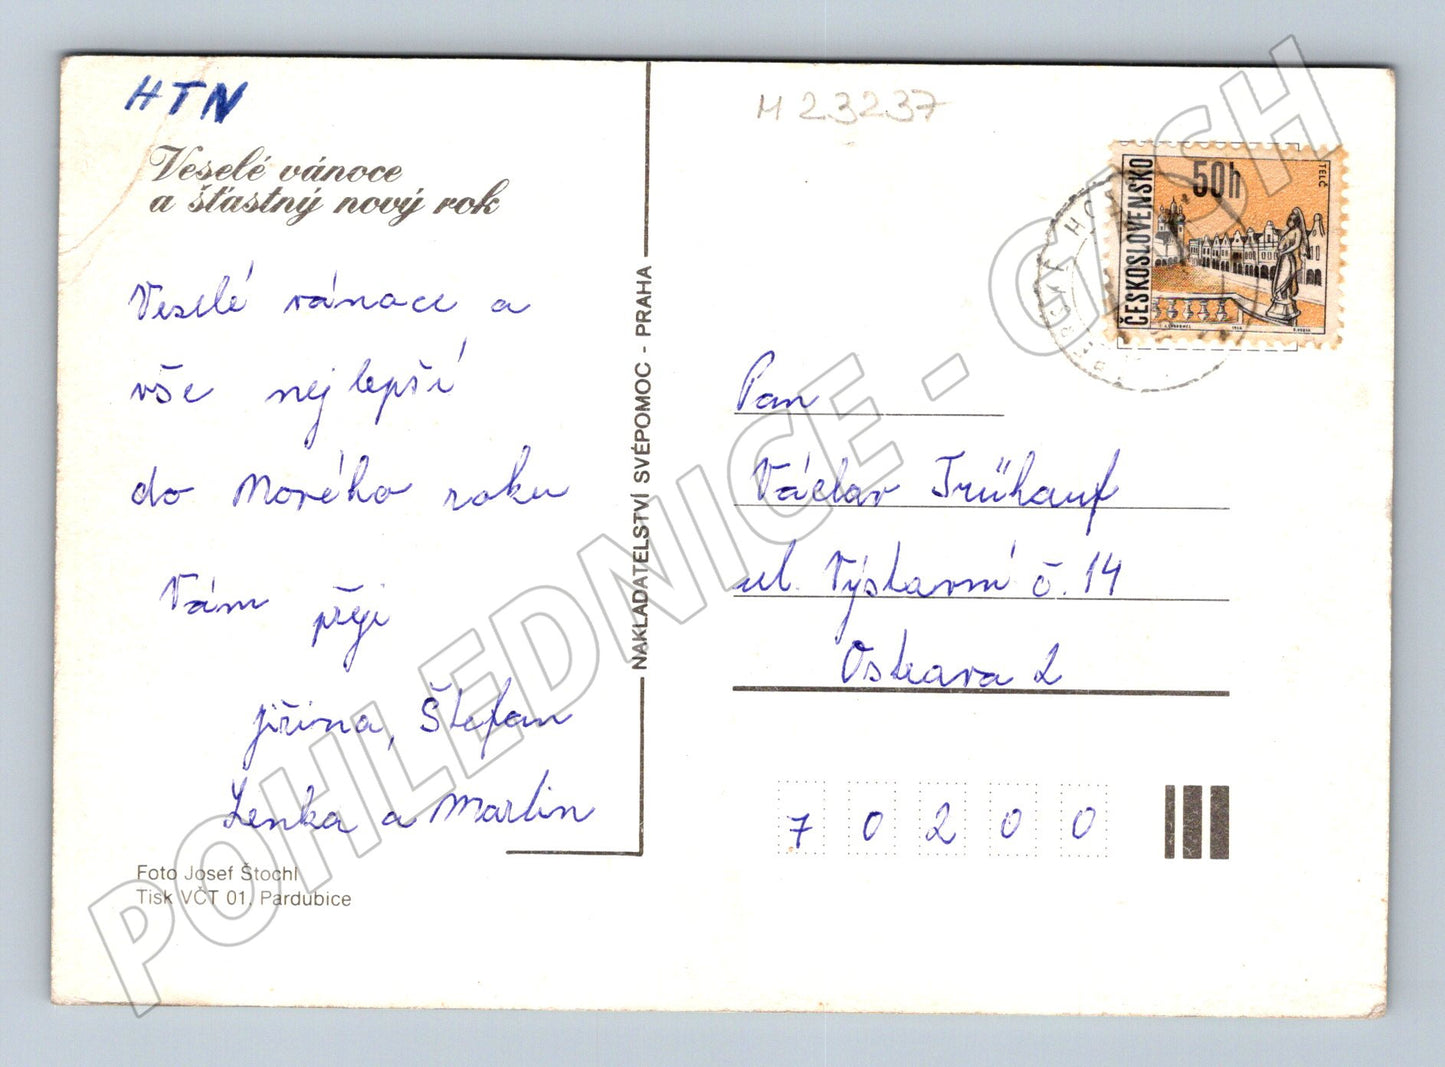 HTN
Veselé vánoce
a šťastný nový rok
Veselé vánoce a
vše nejlepší
do Nového roku
Vám přeji
Jiřina, Štefan
Lenka a Martin
Foto Josef Štochl
Tisk VČT 01, Pardubice
NAKLADATELSTVÍ SVÉPOMOC - PRAHA
M 23237
ČESKOSLOVENSKO
50h
TELČ
Pan
Václav Frühauf
ul. Výstavní č. 14
Ostrava 2
70200
POHLEDNICE - GASH